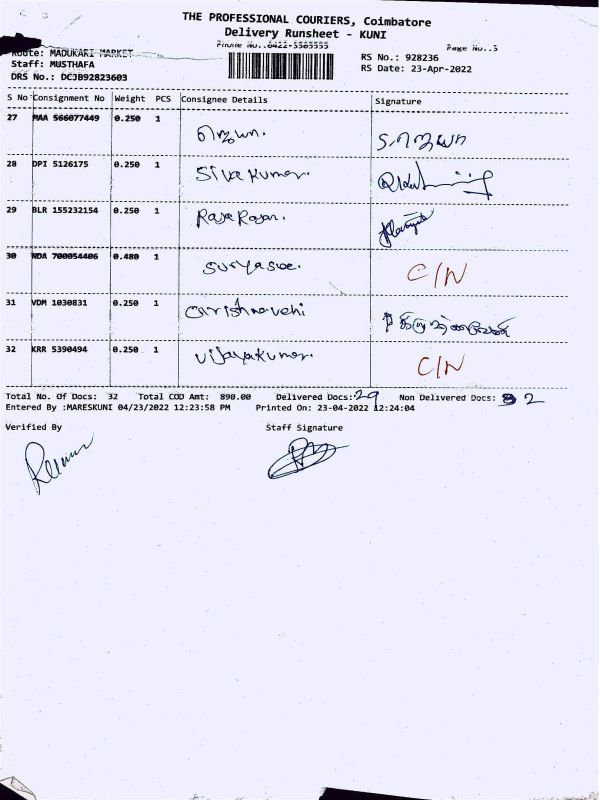 THE PROFESSIONAL COURIERS, Coimbatore
Delivery Runsheet - KUNI
Phone No.:0422-3505555 Page No.:5
Route: MADUKARI MARKET
Staff: MUSTHAFA RS No.: 928236
DRS No.: DCJB92823603 RS Date: 23-Apr-2022
S No Consignment No Weight PCS Consignee Details Signature
27 MAA 566077449 0.250 1
28 DPI 5126175 0.250 1 Siva Kumar.
29 BLR 155232154 0.250 1 Raja Rajan.
30 NDA 700054406 0.480 1 C/N
31 VDM 1030831 0.250 1
32 KRR 5390494 0.250 1 Vijayakumar. C/N
Total No. Of Docs: 32 Total COD Amt: 890.00 Delivered Docs: 29 Non Delivered Docs: 2
Entered By :MARESKUNI 04/23/2022 12:23:58 PM Printed On: 23-04-2022 12:24:04
Verified By Staff Signature